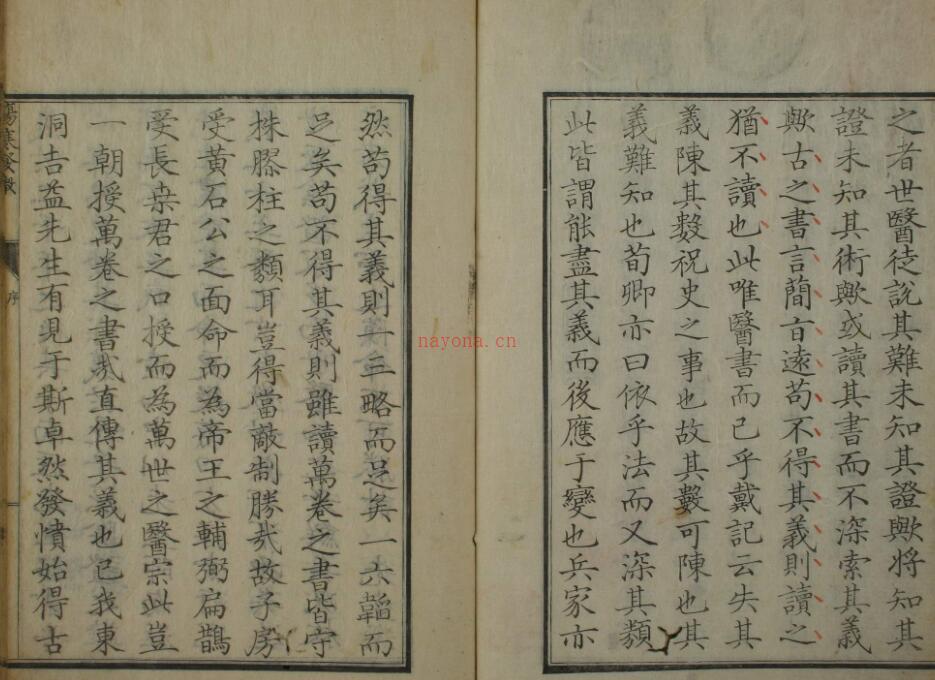 之者世醫徒說其難未知其證歟將知其
證未知其術歟或讀其書而不深索其義
歟古之書言簡旨遠苟不得其義則讀之
猶不讀也此唯醫書而已乎戴記云失其
義陳其數祝史之事也故其數可陳也其
義難知也荀卿亦曰依乎法而又深其類
此皆謂能盡其義而後應于變也兵家亦
然苟得其義則一三略而足矣一六韜而
足矣苟不得其義則雖讀萬卷之書皆守
株膠柱之類耳豈得當敵制勝哉故子房
受黃石公之面命而為帝王之輔弼扁鵲
受長桑君之口授而為萬世之醫宗此豈
一朝授萬卷之書哉直傳其義也已我東
洞吉益先生有見于斯卓然發憤始得古
序
nayona.cn